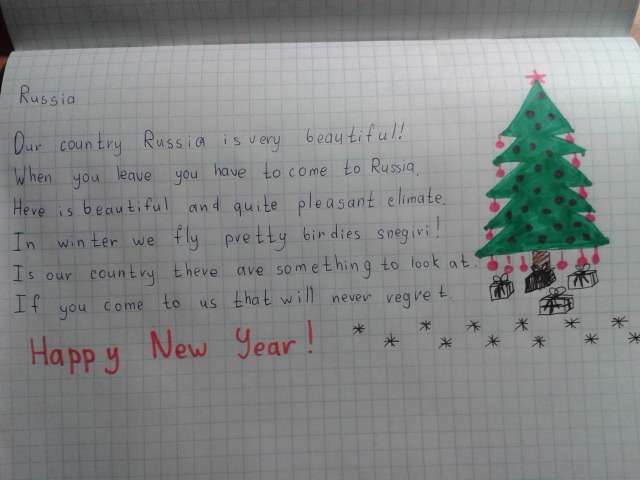 Russia
Our country Russia is very beautiful!
When you leave you have to come to Russia.
Here is beautiful and quite pleasant climate.
In winter we fly pretty birdies snegiri!
Is our country there are something to look at.
If you come to us that will never regret.
Happy New Year!